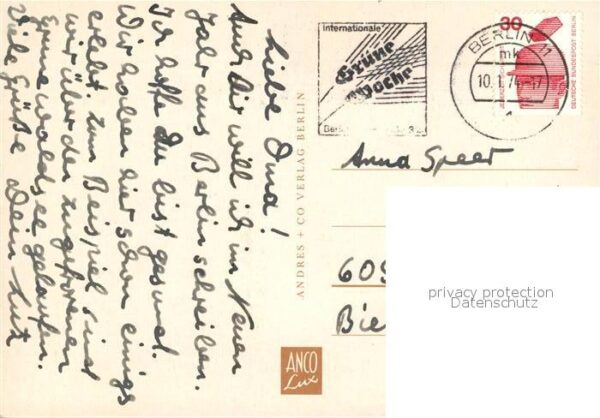 Liebe Oma!
Auch Dir will ich im Neuen
Jahr aus Berlin schreiben.
Ich hoffe Du bist gesund.
Wir haben hier schon einiges
erlebt. Zum Beispiel sind
wir über den zugefrorenen
Grunewaldsee gelaufen.
Viele Grüße Dein Lutz
ANDRES + CO VERLAG BERLIN
ANCO
Lux
Internationale
Grüne
Woche
BERLIN 11
mk
10. 1. 74
30
DEUTSCHE BUNDESPOST BERLIN
Anna Speer
605
Bie
privacy protection
Datenschutz